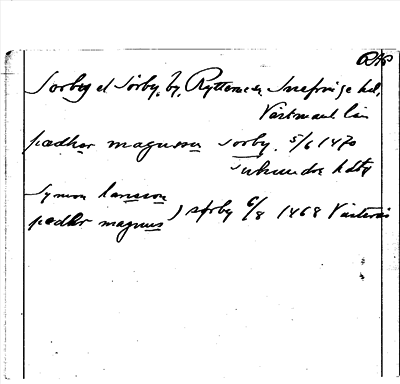 Sörby, by, Rytterne sn, Snefringe hd,
Västmanl. län
pædher magnusson sørby. 5/6 1470
Tuhundra hdtg
Symon larsson
pædher magnus ) sørby 6/8 1468 Västerås